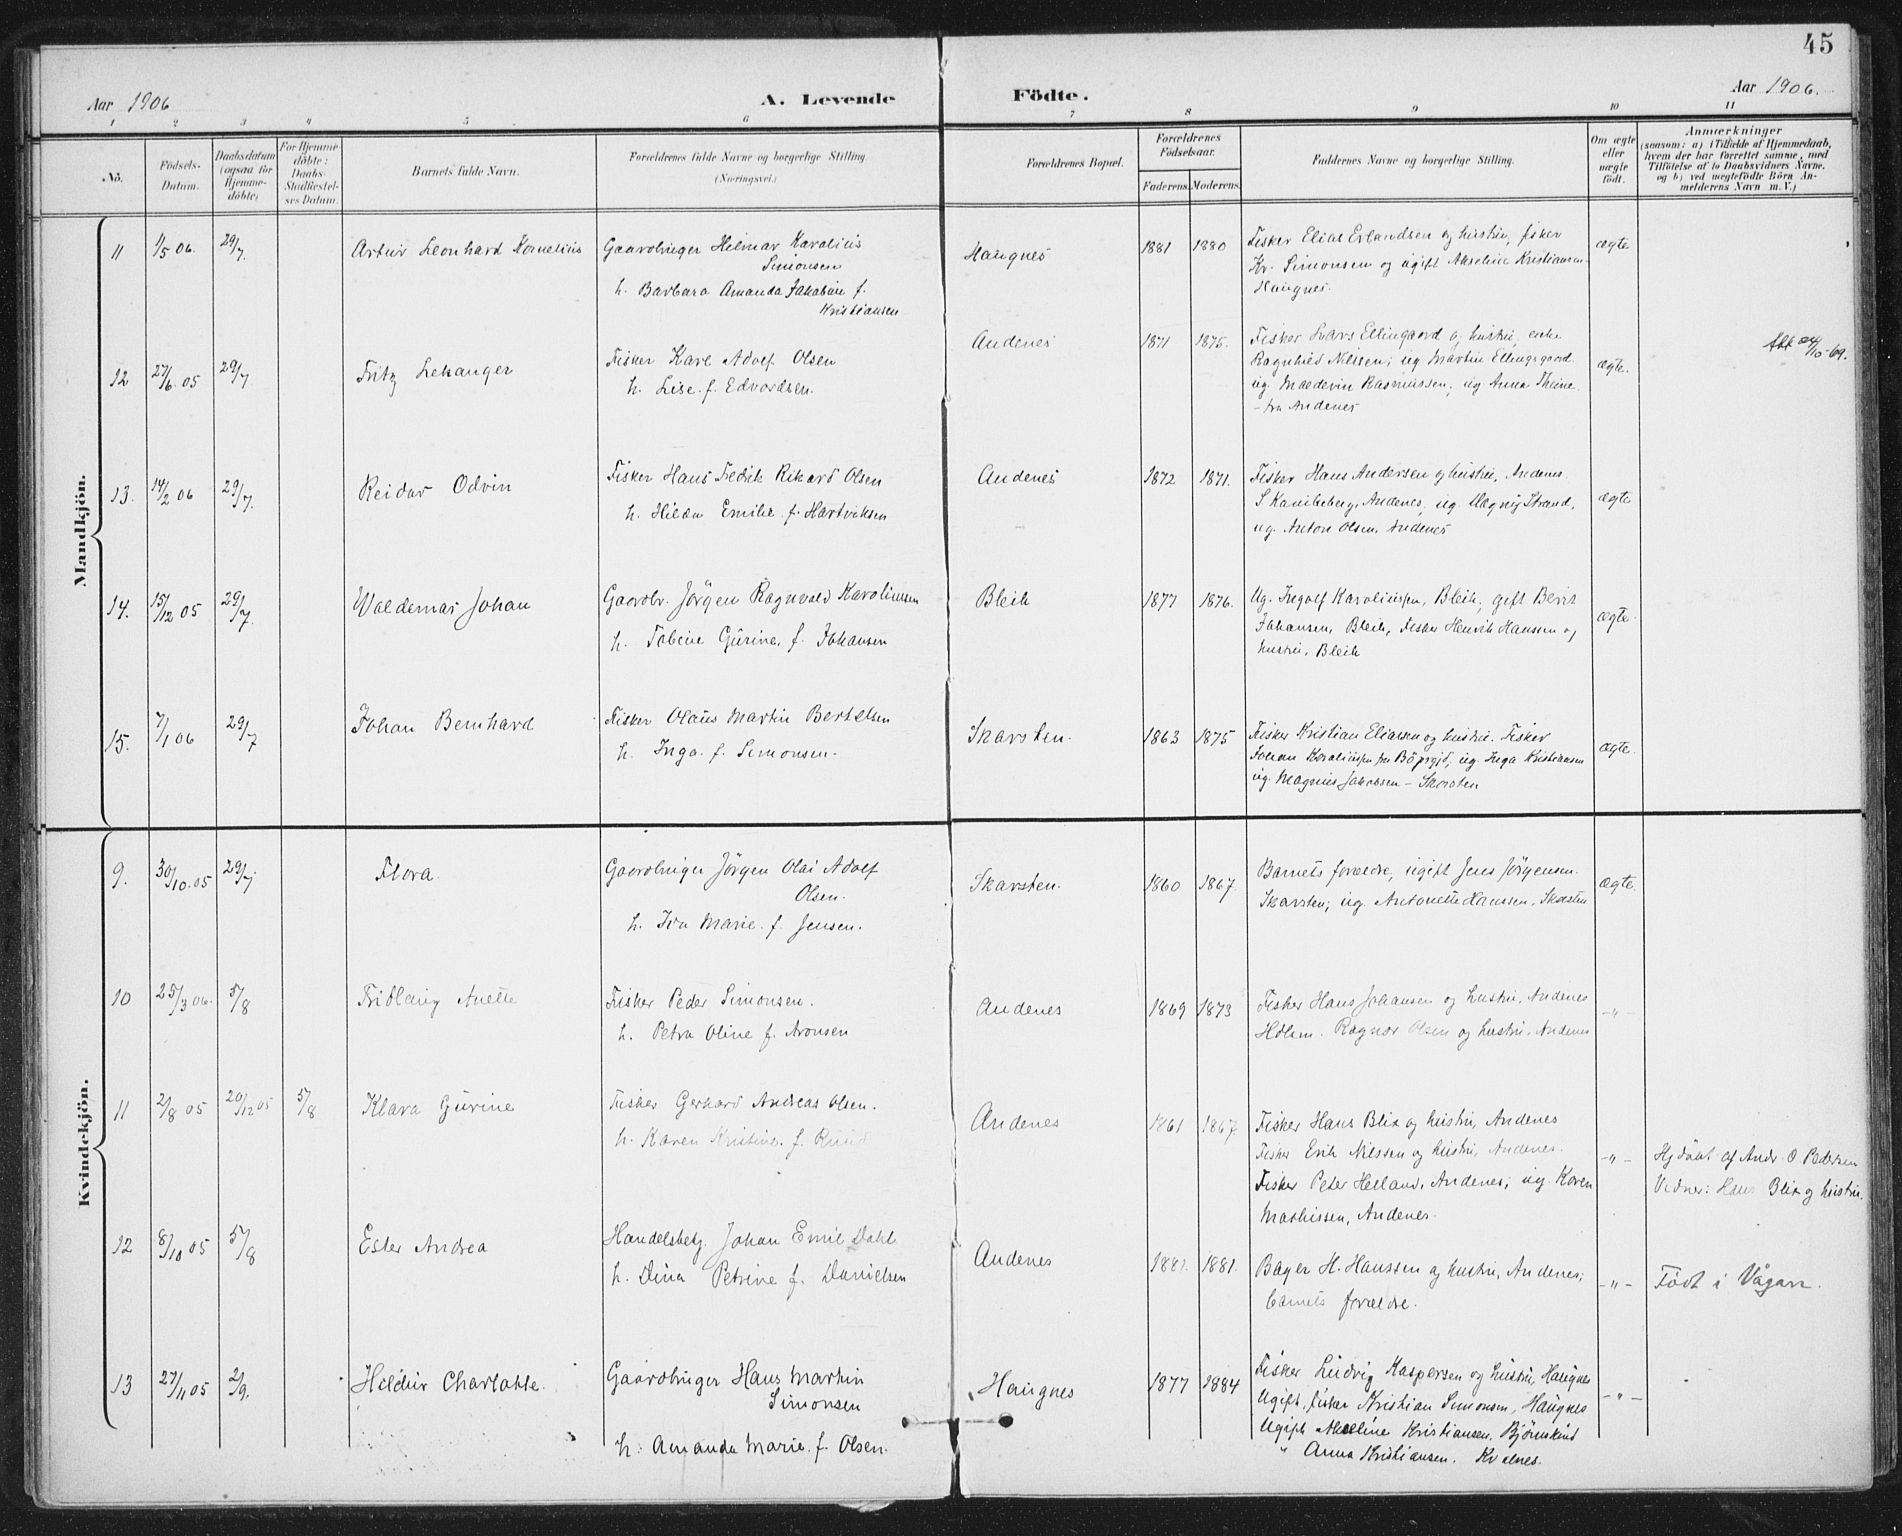 45
Aar 1906
A. Levende Födte.
Aar 1906.
1 2 3 4 5 6 7 8 9 10 11
No.
Födsels-Datum.
Daabsdatum (ogsaa for Hjemmedöbte)
For Hjemmedöbte: Daabs-Stadfæstelses Datum.
Barnets fulde Navn.
Forældrenes fulde Navne og borgerlige Stilling.
(Næringsvei.)
Forældrenes Bopæl.
Forældrenes Födselsaar.
Faderens. Moderens.
Faddernes Navne og borgerlige Stilling.
Om ægte eller uægte födt.
Anmærkninger
(saasom: a) i Tilfælde af Hjemmedaab,
hvem der har forrettet samme, med
Tilföielse af to Daabsvidners Navne.
og b) ved uægtefödte Börn An-
melderens Navn m. V.)
Mandkjön.
11 1/5 06. 29/7. Artur Leonhard Kornelius
Gaardbruger Hilmar Karolius
Simonsen
h. Barbara Amanda Jakobine f.
Kristiansen
Haugnes 1881 1880
Fisker Elias Erlandsen og hustru, fisker
Kr. Simonsen og ugift Akseline Kristiansen
Haugnes.
ægte
12 27/6. 05 29/7. Fritz Lekanger
Fisker Karl Adolf Olsen
h. Lise f. Edvardsen.
Andenes 1871 1875.
Fisker Lars Ellingsgaard og hustru, enke
Ragnhild Nilssen; ug Martin Ellingsgaard
ug. Rasmussen; ug Anna
- fra Andenes
ægte.
13. 14/2 06 29/7. Reidar Odvin
Fisker Hans Fredrik Rikard Olsen
h. Hilda Emilie f. Hartviksen
Andenes 1872 1871.
Fisker Hans Andersen og hustru, Andenes
Andenes, ug. Dagny Strand,
ug. Anton Olsen, Andenes
ægte
14. 15/12 05 29/7. Valdemar Johan
Gaardbr. Jörgen Ragnvald Karoliussen
h. Tobine Gurine, f. Johansen
Bleik 1877 1876.
Ug. Ingolf Karoliussen, Bleik; gift Berit
Johansen, Bleik, Fisker Henrik Hanssen og
hustru, Bleik
ægte.
15. 7/1 06 29/7 Johan Bernhard
Fisker Olaus Martin Bertelsen
h. Inga f. Simonsen.
Skarsten. 1863 1875
Fisker Kristian Eliassen og hustru. Fisker
Johan Karoliussen fra ug. Inga Kristiansen
ug. Magnus Jakobsen - Skarsten
ægte.
Kvindekjön.
9. 30/10. 05 29/7 Flora.
Gaardbruger Jörgen Olai Adolf
Olsen.
h. Iva Marie f. Jensen.
Skarsten. 1860 1867.
Barnets forældre, ugift Jens Jörgensen.
Skarsten; ug. Antonette Hanssen, Skarsten
Ægte.
10 25/3 06. 5/8 Anette
Fisker Peder Simonsen.
h. Petra Oline f. Aronsen
Andenes 1869 1873
Fisker Hans Johansen og hustru, Andenes
Holm. Ragnar Olsen og hustru, Andenes
- " -
11 2/8 05 20/12 05 5/8 Klara Gurine
Fisker Gerhard Andreas Olsen.
h. Karen Kristine f. Ruud
Andenes 1861 1867.
Fisker Hans Blix og hustru, Andenes
Fisker Erik Nilssen og hustru, Andenes.
Fisker Peter Helland, Andenes; ug. Karen
Mathissen, Andenes.
- " -
Hjdöbt af Andr. O Pedersen
Vidner: Hans Blix og hustru.
12 8/10 05 5/8 Ester Andrea
Handelsbetj. Johan Emil Dahl
h. Dina Petrine f. Danielsen
Andenes 1881. 1881.
Bager H. Hanssen og hustru, Andenes;
barnets forældre.
- " -
Födt i Vågan.
13 27/11 05 2/9. Hildur Charlotte.
Gaardbruger Hans Martin
Simonsen
h. Amanda Marie f. Olsen.
Haugnes 1877 1884
Fisker Ludvig Kaspersen og hustru, Haugnes
Ugift, fisker Kristian Simonsen, Haugnes
Ugift Akseline Kristiansen, Björnskind
" Anna Kristiansen. Kvalnes.
- " -